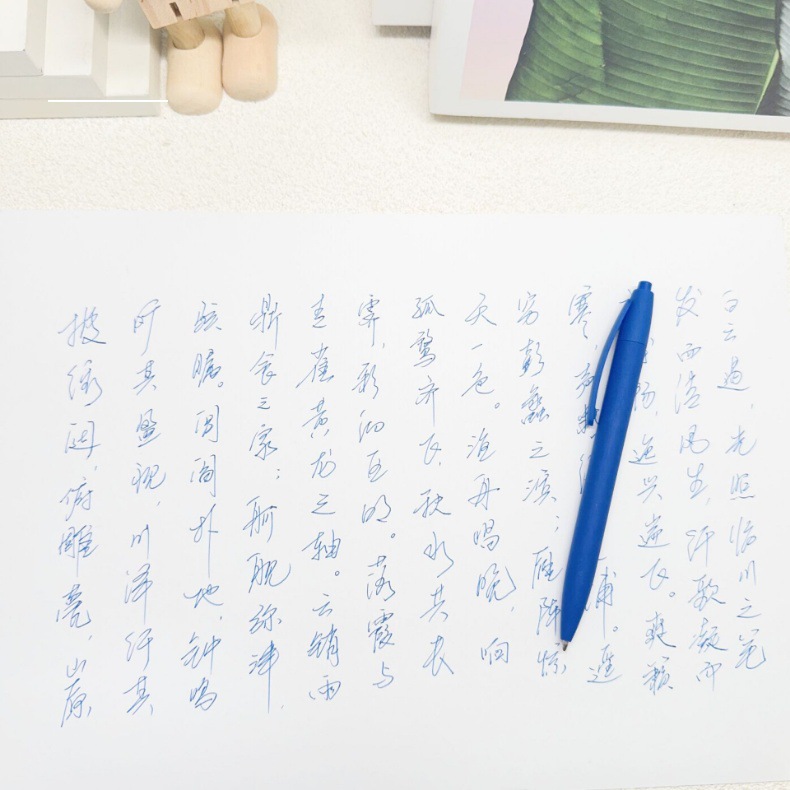 披绣闼,俯雕甍,山原
旷其盈视,川泽纡其
骇瞩。闾阎扑地,钟鸣
鼎食之家;舸舰弥津,
青雀黄龙之轴。云销雨
霁,彩彻区明。落霞与
孤鹜齐飞,秋水共长
天一色。渔舟唱晚,响
穷彭蠡之滨;雁阵惊
寒,声断浦。遥
畅,逸兴遄飞。爽籁
发而清风生,纤歌凝而
白云遏,光照临川之笔